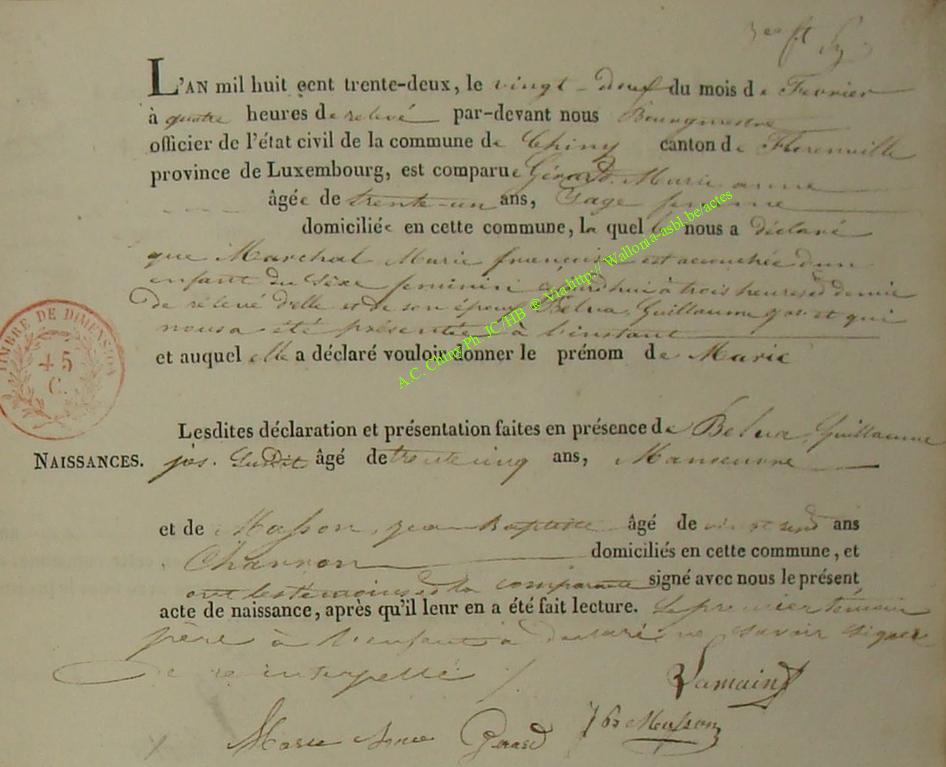 L'AN mil huit cent trente-deux, le vingt-deux du mois de Fevrier
à quatre heures de relevé par-devant nous Bourgmestre
officier de l'état civil de la commune de Chiny canton de Florenville
province de Luxembourg, est comparue Gérard Marie anne
âgée de trente-un ans, Sage femme
domiciliée en cette commune, la quel le nous a déclaré
que Marchal Marie françoise est accouchée d'un
enfant du Sexe feminin aujourdhui à trois heures et demie
de relevé d'elle et de son époux Belva, Guillaume jos. et qui
nous a été présentée à l'instant
et auquel elle a déclaré vouloir donner le prénom de Marie
Lesdites déclaration et présentation faites en présence de Belva, Guillaume
NAISSANCES. jos. Susdit âgé de trente cinq ans, Manoeuvre
et de Masson, jean Baptiste âgé de ans
Charron domiciliés en cette commune, et
ont les témoins et la comparante signé avec nous le présent
acte de naissance, après qu'il leur en a été fait lecture. Le premier témoin
père à l'enfant a declaré ne savoir signer
de ce interpellé
Lamain
Marie Anne Gerard JB Masson
TIMBRE DE DIMENSION
45
C.
A.C. Chiny Ph. JC/HB @ Via http:// Wallonia-asbl.be/actes